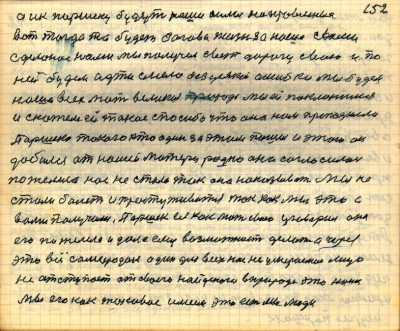 152
а ик паршеку будут наши
вот тогда то будет
сделаное нами мы получим свет дорогу свою и по
ней будем идти смело без всякой ошибки мы будем
наша всех мать великая природа мы ей поклонимся
и скажем ей такое спасибо это она нам преподнесла
Паршека такого кто один за этим пошел и этого он
добился от нашей матери родно она согласилася
пожелила нас не стало так она наказывать мы не
стали болеть и простуживатся так как мы это с
вами получили, Паршек ее как мать свою уговорил она
его пожелела и дала ему возможность делать а через
это всё самородок один для всех нас не умирающее лицо
не отступает от своего найденого в природе это наше
мы его как таковое имеем это есть мы люди